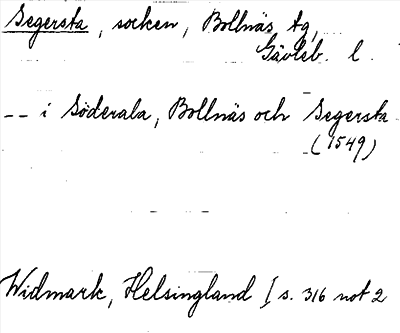 Segersta, socken, Bollnäs tg,
Gävleb. l.
-- i Söderala, Bollnäs och Segersta
(1549)
Widmark, Helsingland I s. 316 not 2